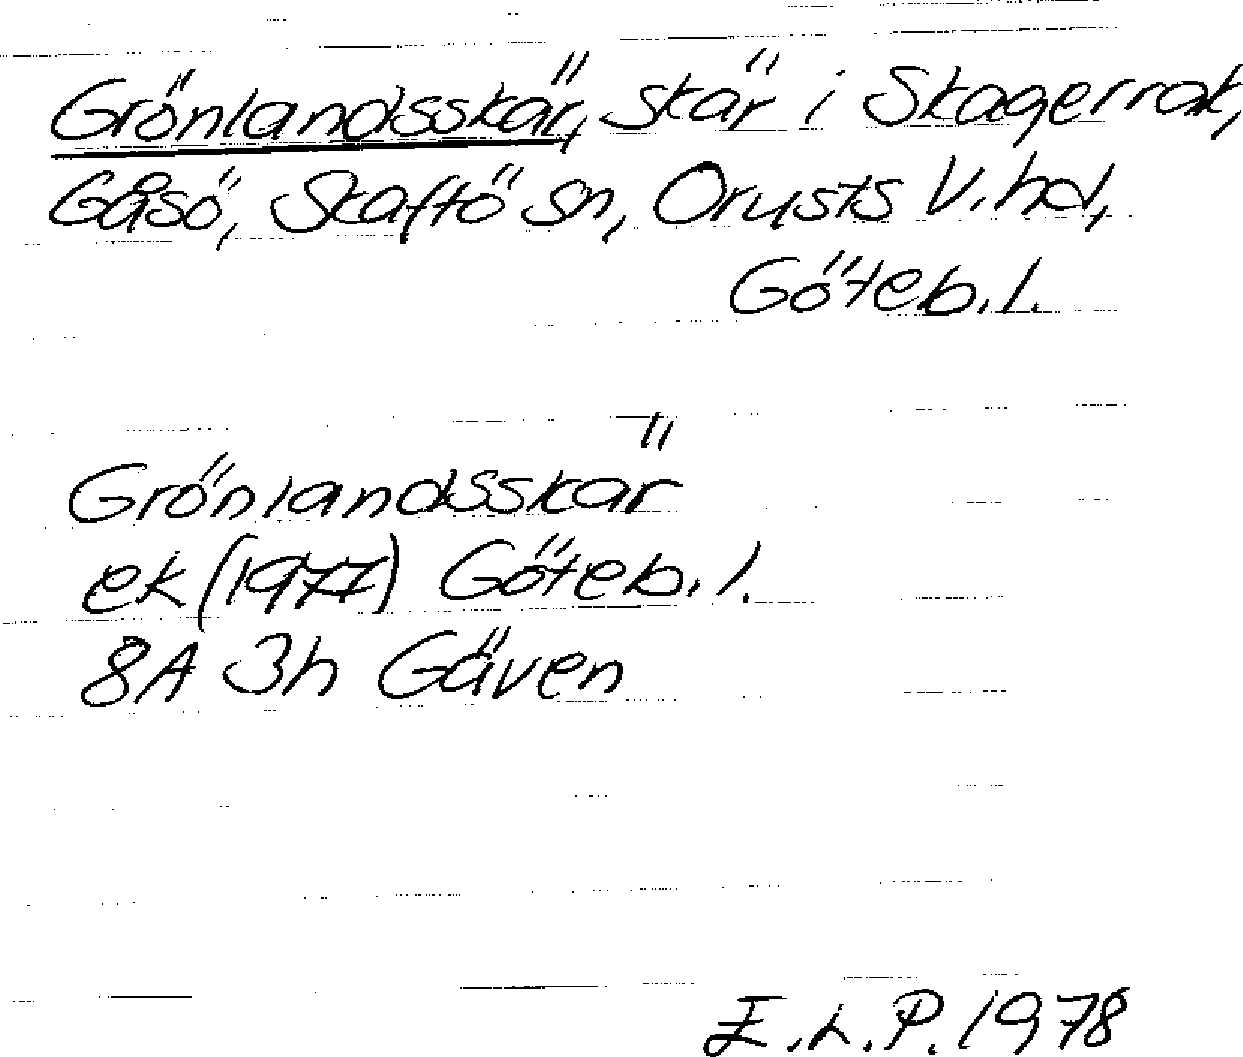 Grönlandsskär, skär i Skagerrak,
Gåsö, Skaftö sn, Orusts V. hd,
Göteb. l.
Grönlandsskär
ek (1977) Göteb. l.
8A 3h Gåven
E.L.P. 1978